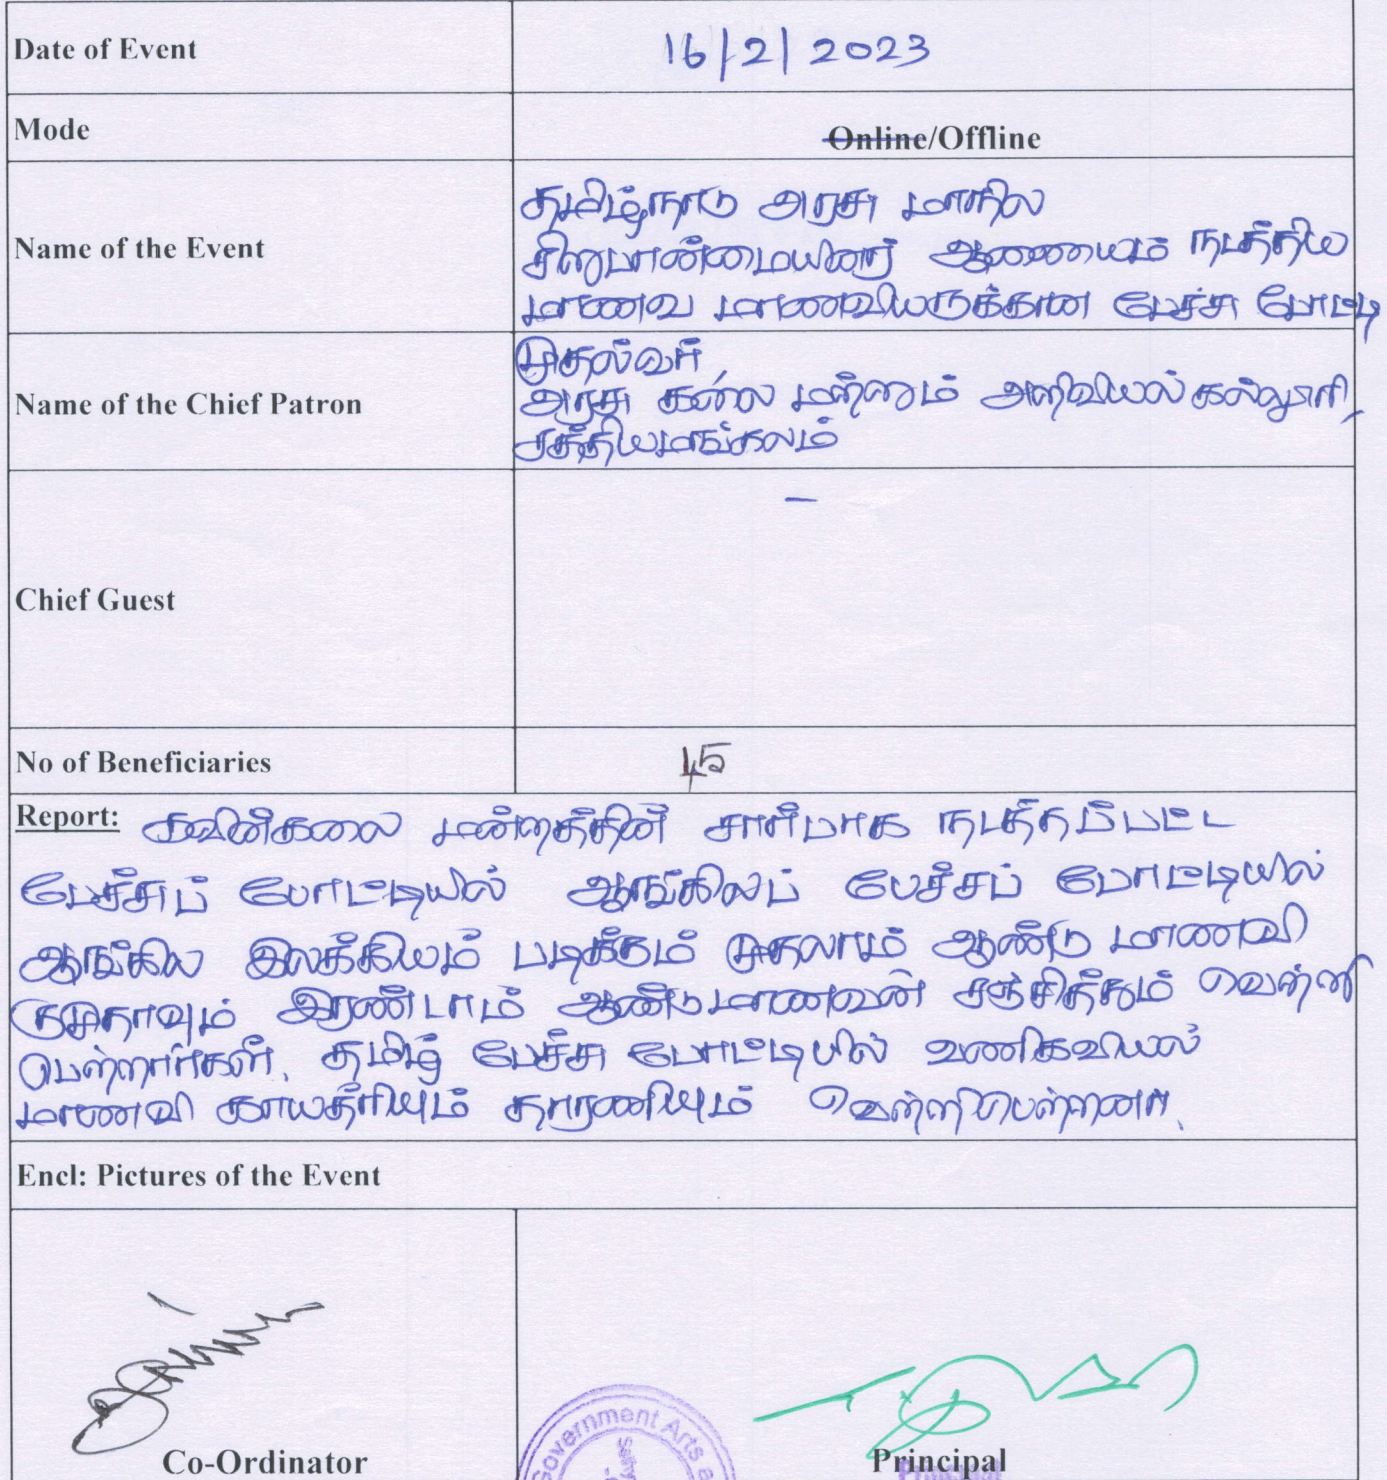 Date of Event 16/2/2023
Mode Online/Offline
Name of the Event
தமிழ்நாடு அரசு மாநில
சிறுபான்மையினர் ஆணையம் நடத்திய
மாணவ மாணவியருக்கான பேச்சு போட்டி
Name of the Chief Patron
முதல்வர்,
அரசு கலை மற்றும் அறிவியல் கல்லூரி,
சத்தியமங்கலம்
Chief Guest –
No of Beneficiaries 45
Report: கவின்கலை மன்றத்தின் சார்பாக நடத்தப்பட்ட
பேச்சுப் போட்டியில் ஆங்கிலப் பேச்சுப் போட்டியில்
ஆங்கில இலக்கியம் படிக்கும் முதலாம் ஆண்டு மாணவி
குமுதாவும் இரண்டாம் ஆண்டு மாணவன் சஞ்சித்தும் வெற்றி
பெற்றார்கள். தமிழ் பேச்சு போட்டியில் வணிகவியல்
மாணவி காயத்ரியும் தாரணியும் வெற்றிபெற்றனர்.
Encl: Pictures of the Event
Government Arts
Co-Ordinator
Principal
Principal